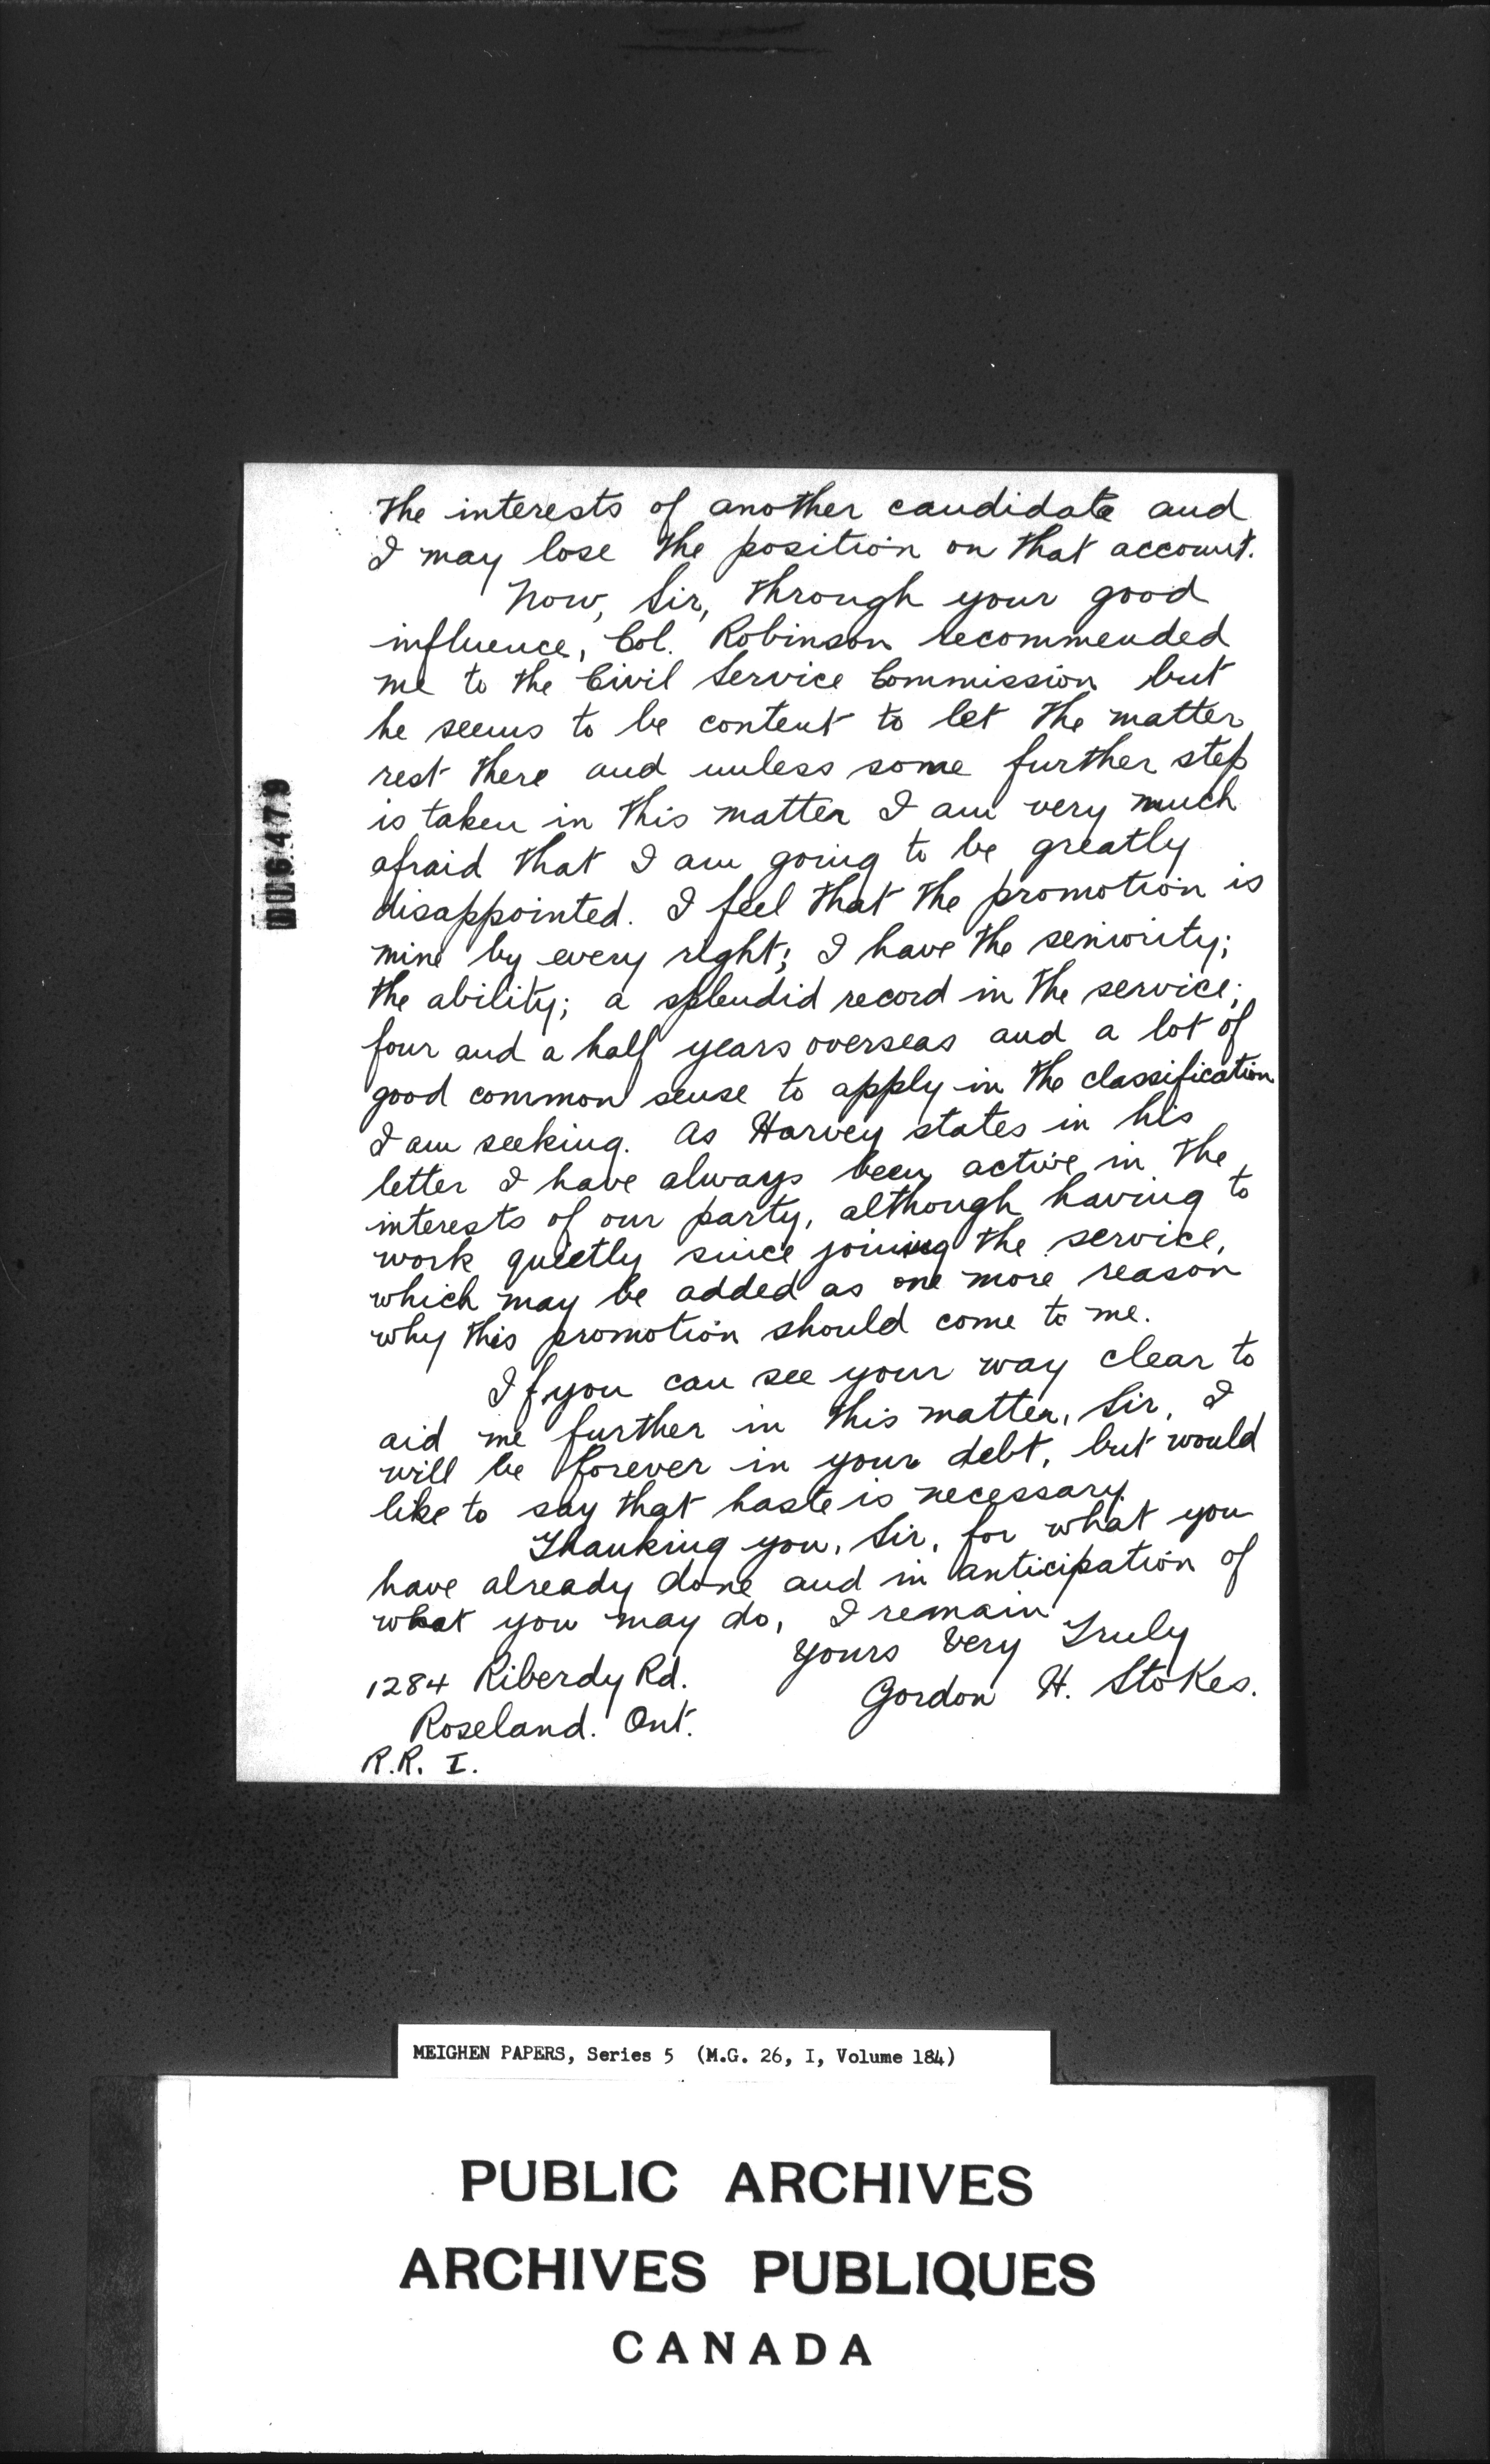 the interests of another candidate and
I may lose the position on that account.
Now, Sir, through your good
influence, Col. Robinson recommended
me to the Civil Service Commission but
he seems to be content to let the matter
rest there and unless some further step
is taken in this matter I am very much
afraid that I am going to be greatly
disappointed. I feel that the promotion is
mine by every right; I have the seniority;
the ability; a splendid record in the service;
four and a half years overseas and a lot of
good common sense to apply in the classification
I am seeking. As Harvey states in his
letter I have always been active in the
interests of our party, although having to
work quietly since joining the service,
which may be added as one more reason
why this promotion should come to me.
If you can see your way clear to
aid me further in this matter, Sir, I
will be forever in your debt, but would
like to say that haste is necessary.
Thanking you, Sir, for what you
have already done and in anticipation of
what you may do, I remain
Yours Very Truly
Gordon H. Stokes.
1284 Riberdy Rd.
Roseland. Ont.
R.R. I.
MEIGHEN PAPERS, Series 5 (M.G. 26, I, Volume 184)
PUBLIC ARCHIVES
ARCHIVES PUBLIQUES
CANADA